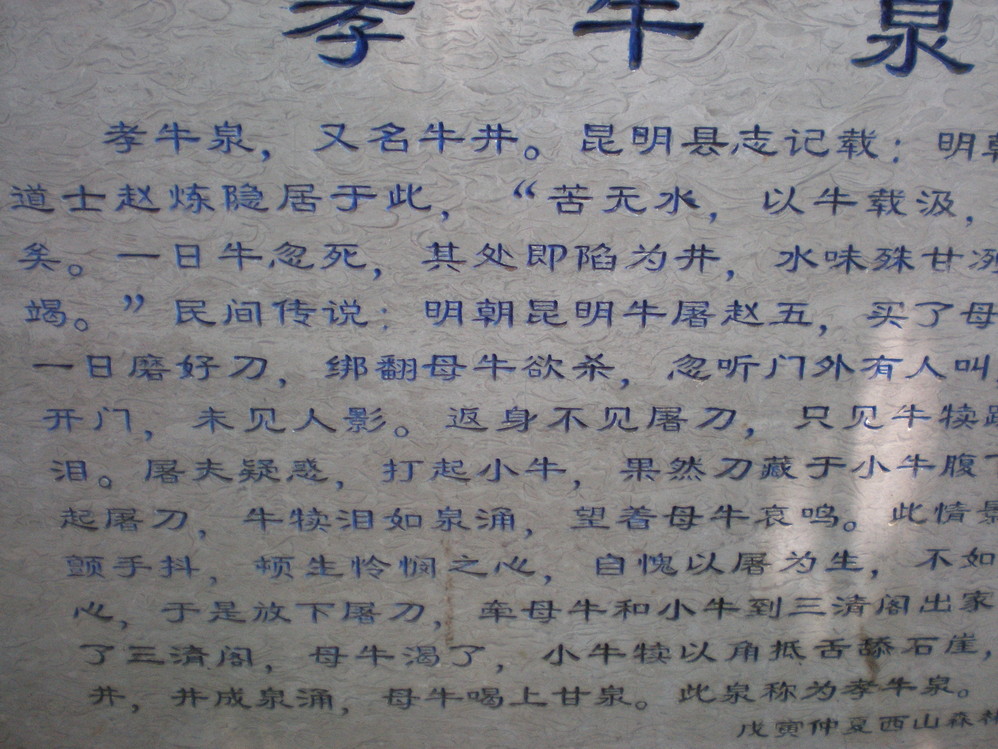 孝牛泉
孝牛泉，又名牛井。昆明县志记载：明朝
道士赵炼隐居于此，“苦无水，以牛载汲，
矣。一日牛忽死，其处即陷为井，水味殊甘冽
竭。”民间传说：明朝昆明牛屠赵五，买了母
一日磨好刀，绑翻母牛欲杀，忽听门外有人叫
开门，未见人影。返身不见屠刀，只见牛犊跪
泪。屠夫疑惑，打起小牛，果然刀藏于小牛腹下
起屠刀，牛犊泪如泉涌，望着母牛哀鸣。此情景
颤手抖，顿生怜悯之心，自愧以屠为生，不如
心，于是放下屠刀，牵母牛和小牛到三清阁出家
了三清阁，母牛渴了，小牛犊以角抵舌舔石崖，
井，井成泉涌，母牛喝上甘泉。此泉称为孝牛泉。
戊寅仲夏西山森林